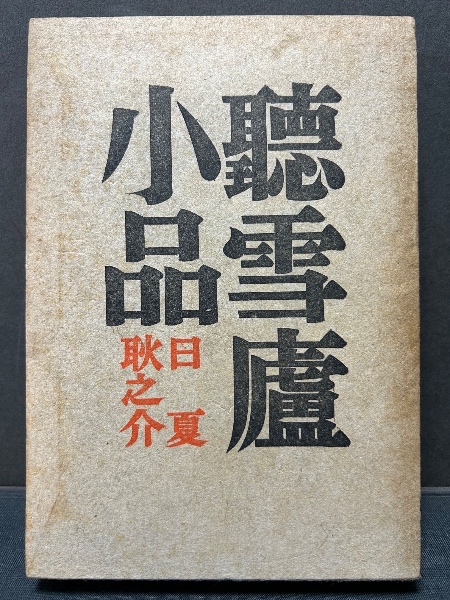 聽雪廬
小品
日夏
耿之介